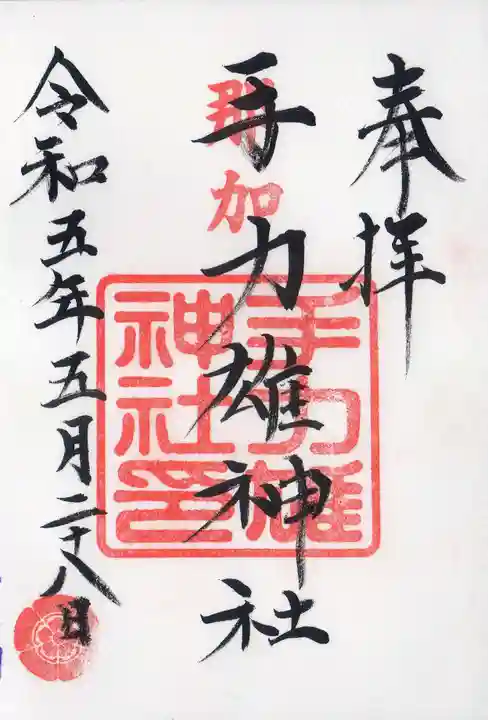 奉拝
那加
手力雄神社
手力雄神社印
令和五年五月二十八日